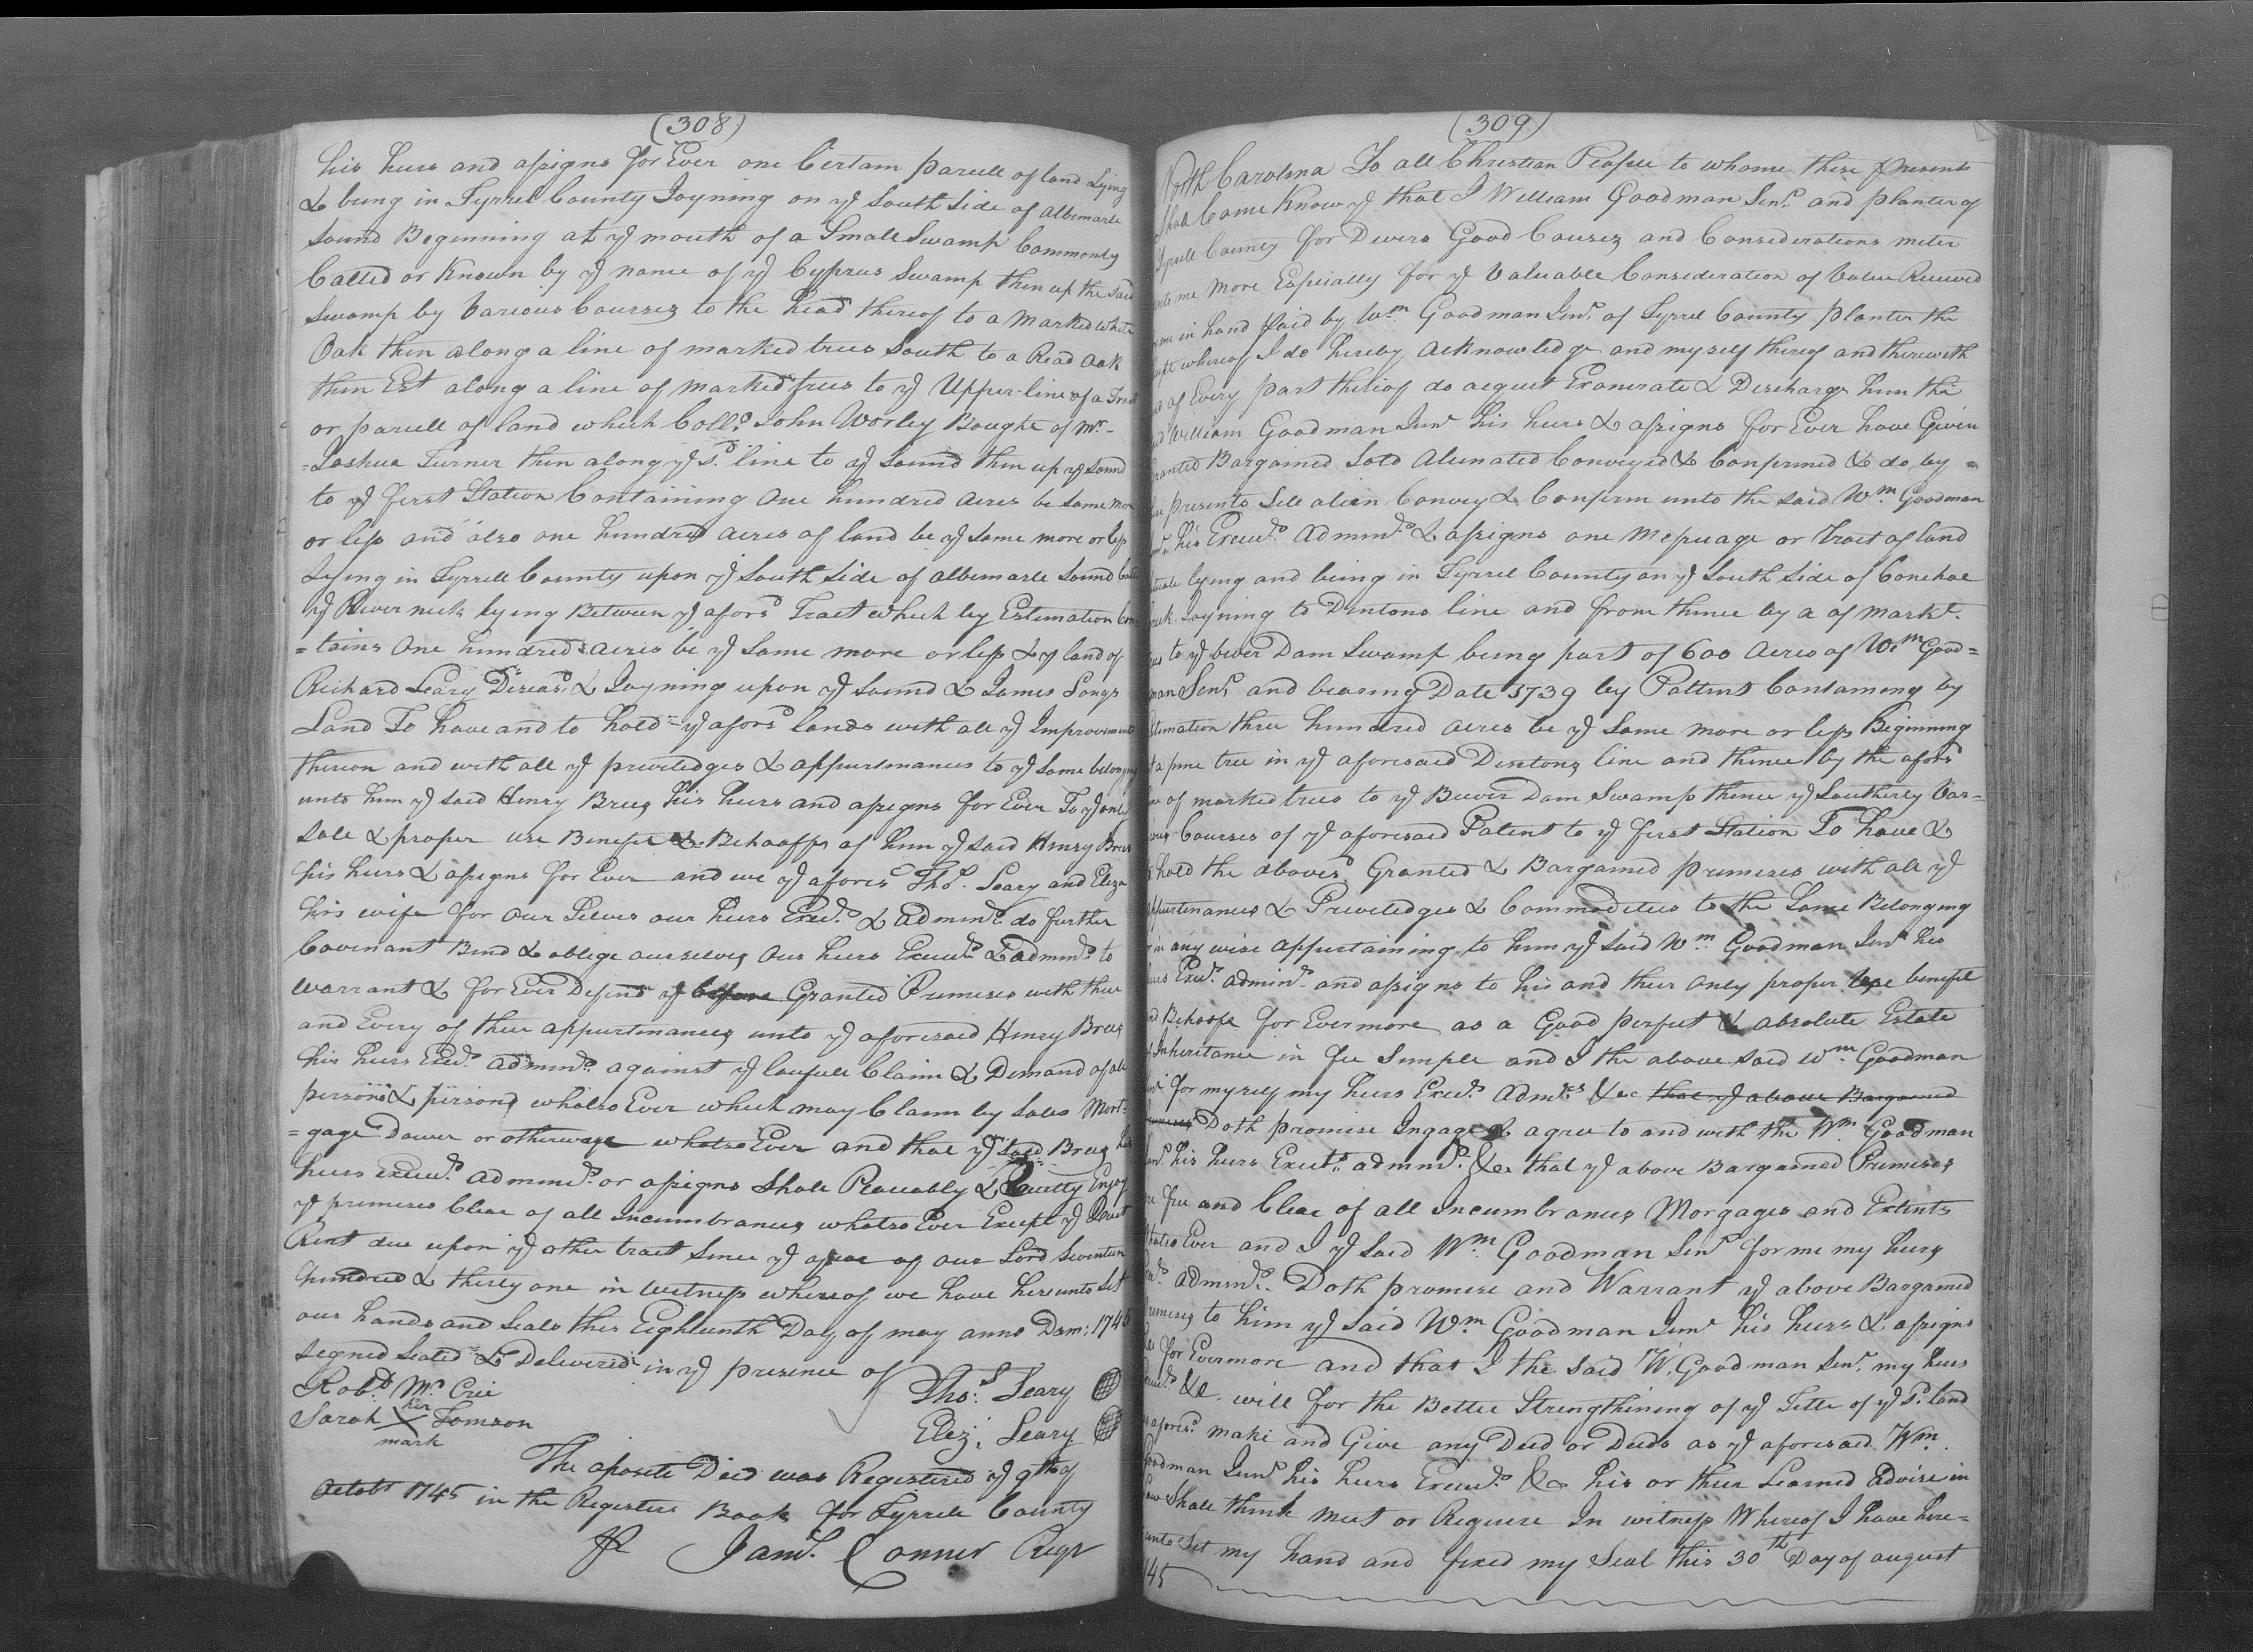 (308)
his heirs and assigns for Ever one Certain parcell of land Lying
& being in Tyrrel County Joyning on ye South Side of Albemarle
Sound Beginning at ye mouth of a Small Swamp Commonly
Called or Known by ye name of ye Cyprus Swamp then up the said
Swamp by Various Courses to the head thereof to a marked white
Oak then along a line of marked trees South to a Read oak
then Est along a line of marked trees to ye Upper line of a Tract
or parcell of land which Collo John Worley Bought of Mr
=Joshua Turner then along ye sd line to ye Sound then up ye Sound
to ye first Station Containing One hundred acres be same more
or less and also one hundred acres of land be ye same more or less
Lying in Tyrrell County upon ye South Side of albemarle Sound
ye River neck lying Between ye aforsd Tract which by Estimation Con
=tains One hundred acres be ye same more or less & ye land of
Richard Leary Diceasd & Joyning upon ye Sound & James Longs
Land To have and to hold ye aforsd lands with all ye Improvements
thereon and with all ye priviledges & appurtenances to ye same belonging
unto him ye said Henry Brees his heirs and assigns for Ever To ye only
sole & proper use Benefit & Behooffs of him ye said Henry Brees
his heirs & assigns for Ever and we ye afores Thos Leary and Eliza
his wife for our Selves our heirs Execrs & adminrs do further
Covenant Bind & oblige ourselves our heirs Execrs & adminrs to
warrant & for Ever Defend ye before Granted Premises with their
and Every of their appurtenances unto ye aforesaid Henry Brees
his heirs Execrs adminrs against ye lawfull Claim & Demand of all
persons & persons whatsoEver which may Claim by Sales Mort=
=gage Dower or otherways whatsoEver and that ye said Brees his
heirs execrs adminrs or assigns shall Peaceably & Quietly Enjoy
ye premises Clear of all Incumbrances whatsoEver Except ye Quit
Rent due upon ye other tract Since ye year of our Lord Seventeen
hundred & thirty one in witness whereof we have hereunto Set
our hands and Seals this Eighteenth Day of may anno Dom: 1745
Segned Sealed & Delivered in ye presence of
Robt Mc Crie
Thos Leary
Sarah her X mark Tomson
Eliz: Leary
The aposite Deed was Registered ye 9th of
Octobr 1745 in the Registers Book for Tyrrele County
Jams Conner Regr
(309)
North Carolina To all Christian People to whome these presents
Shall Come Know ye that I William Goodman Senr and planter of
Tyrell County for Divers Good Causes and Considerations meter
unto me More Espicially for ye Valuable Consideration of Value Received
me in hand paid by Wm Goodman Junr of Tyrrel County planter the
whereof I do hereby acknowledge and myself thereof and therewith
of Every part thereof do acquet Exonerate & Discharge him the
William Goodman Junr his heirs & assigns for Ever have Given
Granted Bargained Sold Alienated Conveyed & Confirmed & do by =
presents Sell alien Convey & Confirm unto the said Wm Goodman
his Execrs Adminrs & assigns one Messuage or Tract of land
lying and being in Tyrrel County on ye South Side of Conehoe
Creek Joyning to Dentons line and from thence by a of markt
to ye bever Dam Swamp being part of 600 Acres of Wm Good=
man Senr and bearing Date 1739 by Pattent Containing by
Estimation three hundred acres be ye same more or less Beginning
at a pine tree in ye aforesaid Dentons line and thence by the aforsd
of marked trees to ye Beever Dam Swamp thence ye Southerly Var=
Courses of ye aforesaid Patent to ye first Station To have &
hold the abovesd Granted & Bargained premises with all ye
appurtenances & Priviledges & Commodities to the Same Belonging
in any wise appertaining to him ye said Wm Goodman Junr his
heirs Execrs adminrs and assigns to his and their only proper use benefit
and Behoofe for Evermore as a Good perfect & absolute Estate
Inheritance in fee Simple and I the above said Wm Goodman
for myself my heirs Execrs admrs &c that ye above Bargained
premises Doth promise Ingage & agree to and with the Wm Goodman
his heirs Execrs adminrs &c that ye above Bargained Premises
free and Clear of all Incumbrances Morgages and Extents
whatsoEver and I ye said Wm Goodman Senr for me my heirs
adminrs Doth promise and Warrant ye above Bargained
premises to him ye said Wm Goodman Junr his heirs & assigns
for Evermore and that I the said W. Goodman Senr my heirs
&c. will for the Better Strengthining of ye Title of ye sd land
afores make and Give any Deed or Deeds as ye aforesaid Wm
Goodman Junr his heirs Execrs &c his or their Learned Advise in
Law Shall think meet or Require In witness Whereof I have here=
unto Set my hand and fixed my Seal this 30th Day of august